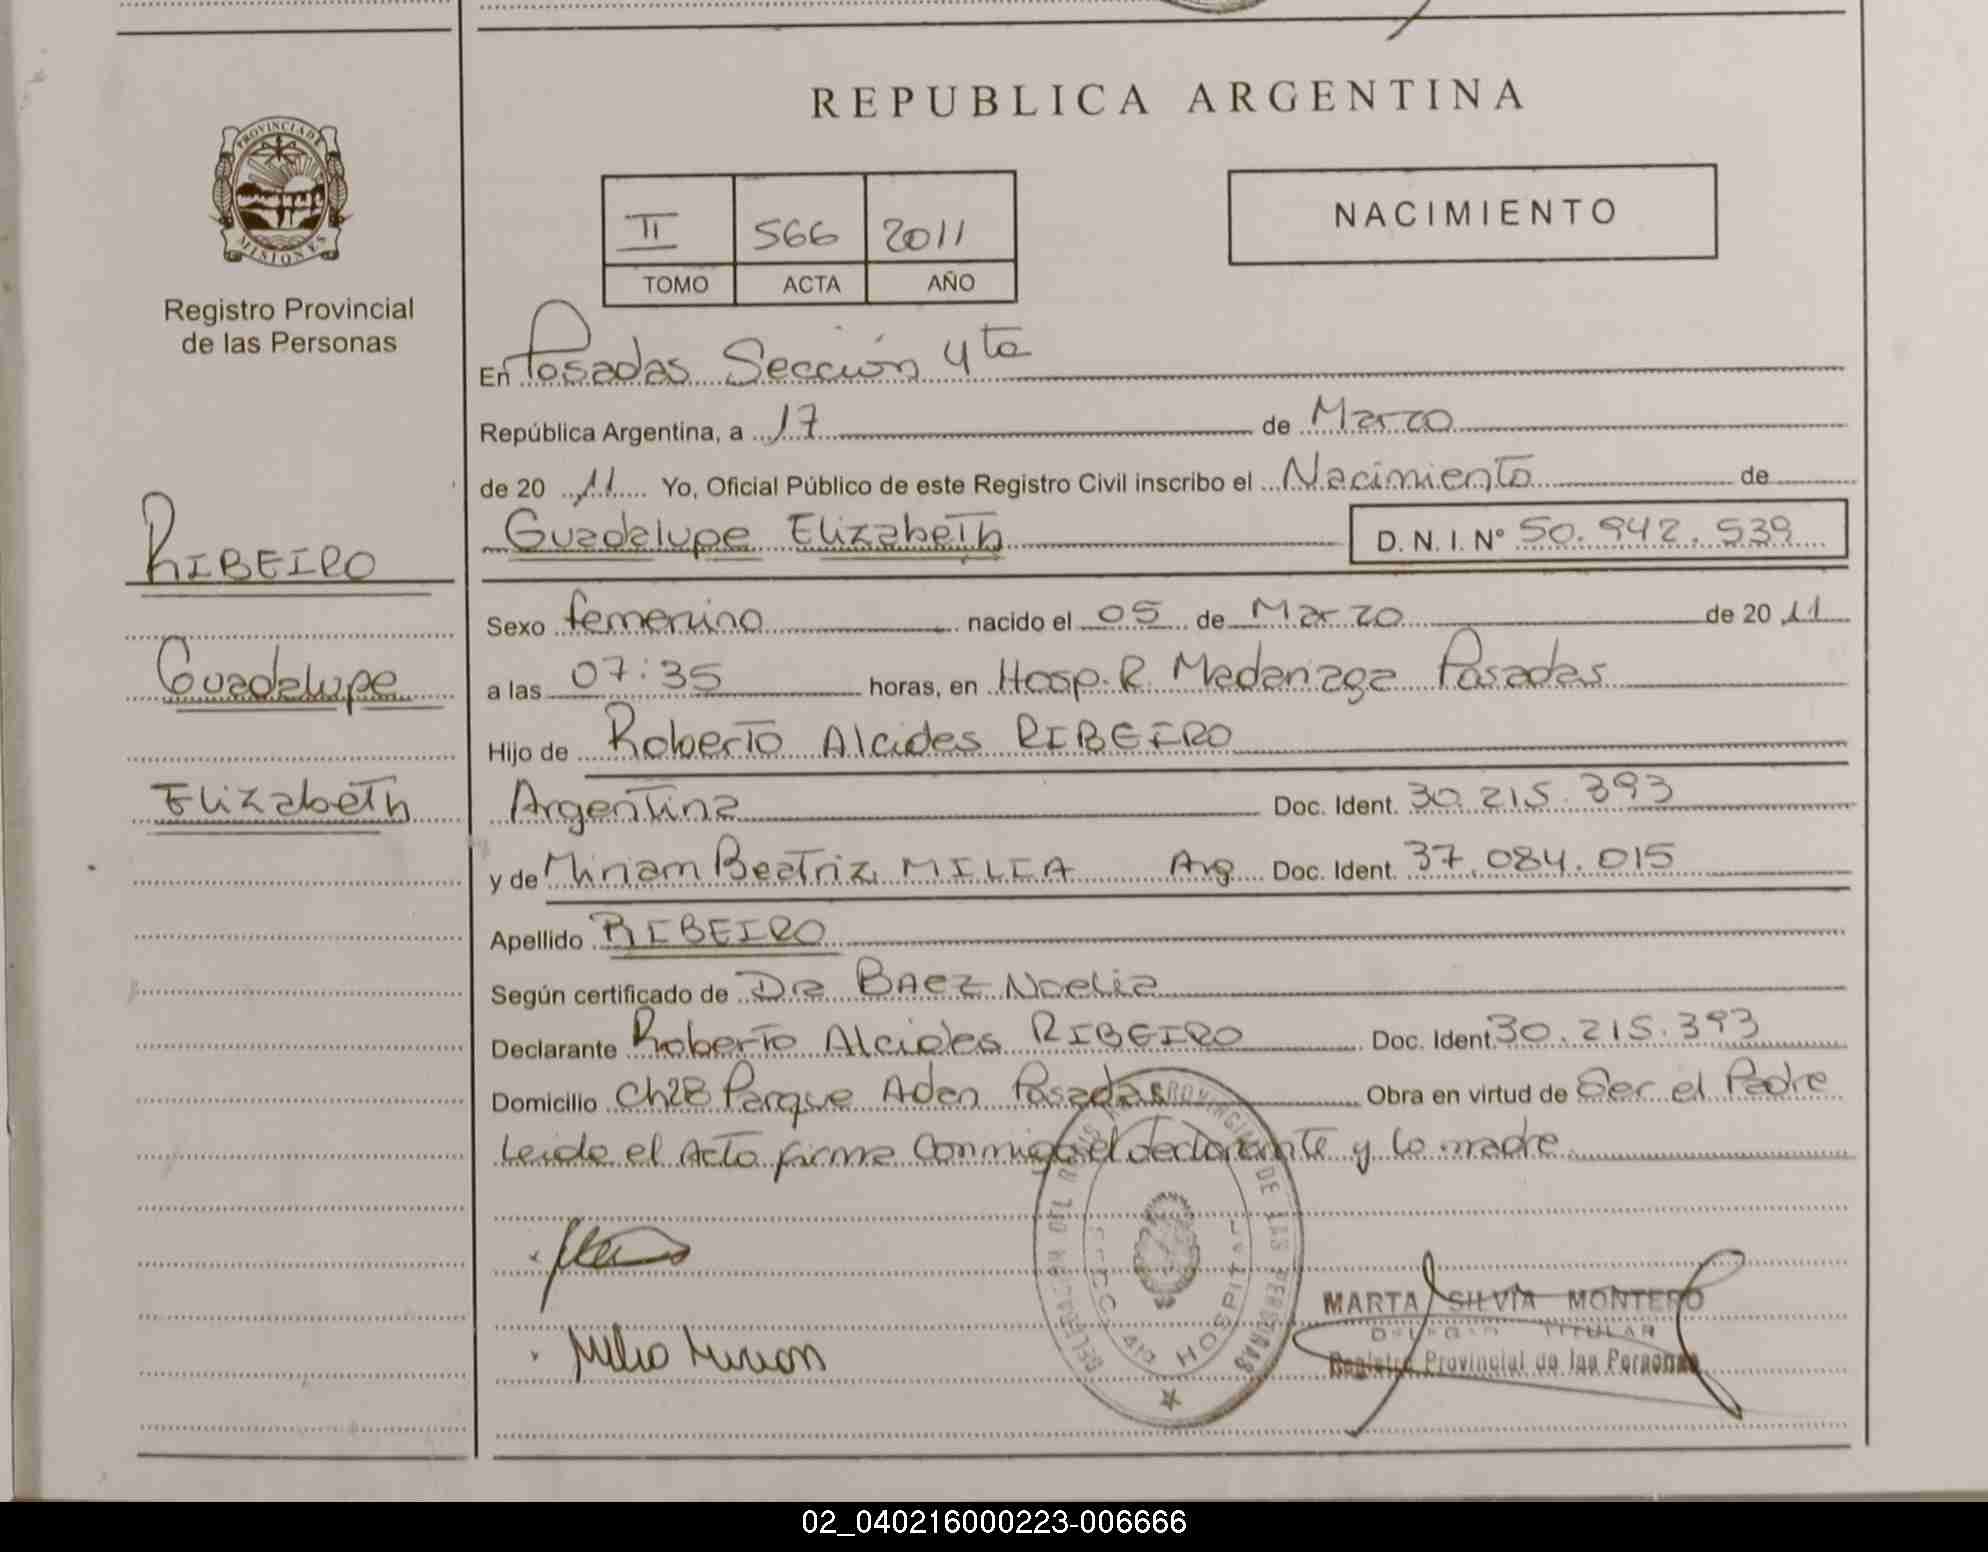 REPUBLICA ARGENTINA
PROVINCIA DE
MISIONES
Registro Provincial
de las Personas
II 566 2011
TOMO ACTA AÑO
NACIMIENTO
En Posadas Sección 4ta
República Argentina, a 17 de Marzo
de 20 11 Yo, Oficial Público de este Registro Civil inscribo el Nacimiento de
Guadalupe Elizabeth D. N. I. Nº 50.942.539
RIBEIRO
Guadalupe
Elizabeth
Sexo femenino nacido el 05 de Marzo de 20 11
a las 07:35 horas, en Hosp. R. Madariaga Posadas
Hijo de Roberto Alcides RIBEIRO
Argentina Doc. Ident. 30.215.393
y de Miriam Beatriz MILCA Arg Doc. Ident. 37.084.015
Apellido RIBEIRO
Según certificado de Dra BAEZ Noelia
Declarante Roberto Alcides RIBEIRO Doc. Ident. 30.215.393
Domicilio Ch28 Parque Adan Posadas Obra en virtud de Ser el Padre
Leida el Acta firma conmigo el declarante y la madre
MARTA SILVIA MONTERO
TITULAR
Registro Provincial de las Personas
HOSPITAL
02_040216000223-006666